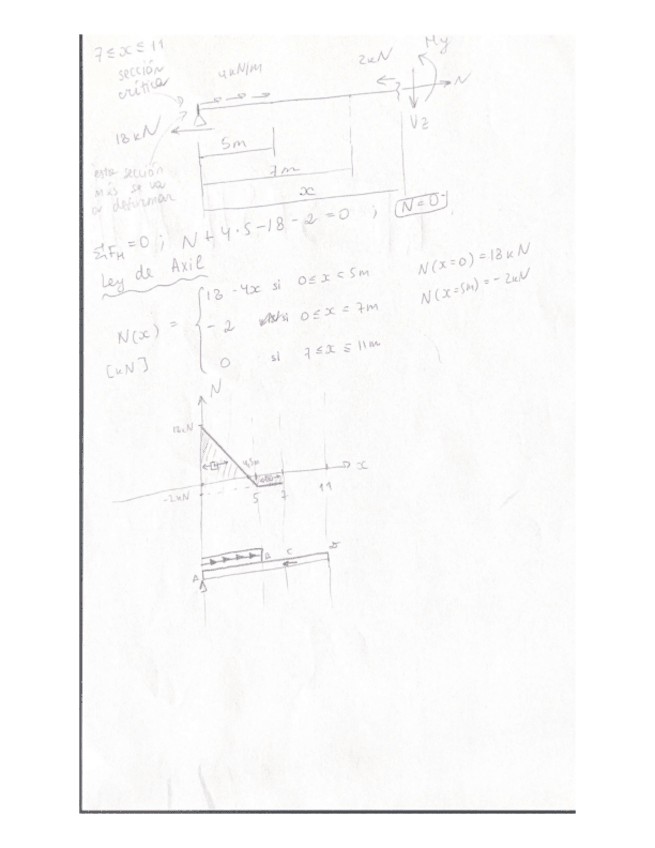 7 ≤ x ≤ 11
sección
crítica
4 kN/m
2kN
My
N
Vz
18 kN
5m
7m
x
esta sección
más se va
a deformar
ΣF_H = 0 ; N + 4·5 - 18 - 2 = 0 ; N = 0
Ley de Axil
N(x) =
[kN]
18 - 4x si 0 ≤ x ≤ 5m
- 2 si 0 ≤ x ≤ 7m
0 si 7 ≤ x ≤ 11m
N(x=0) = 18 kN
N(x=5m) = - 2kN
N
18kN
4,5m
x
-2kN
5 7 11
A B C D